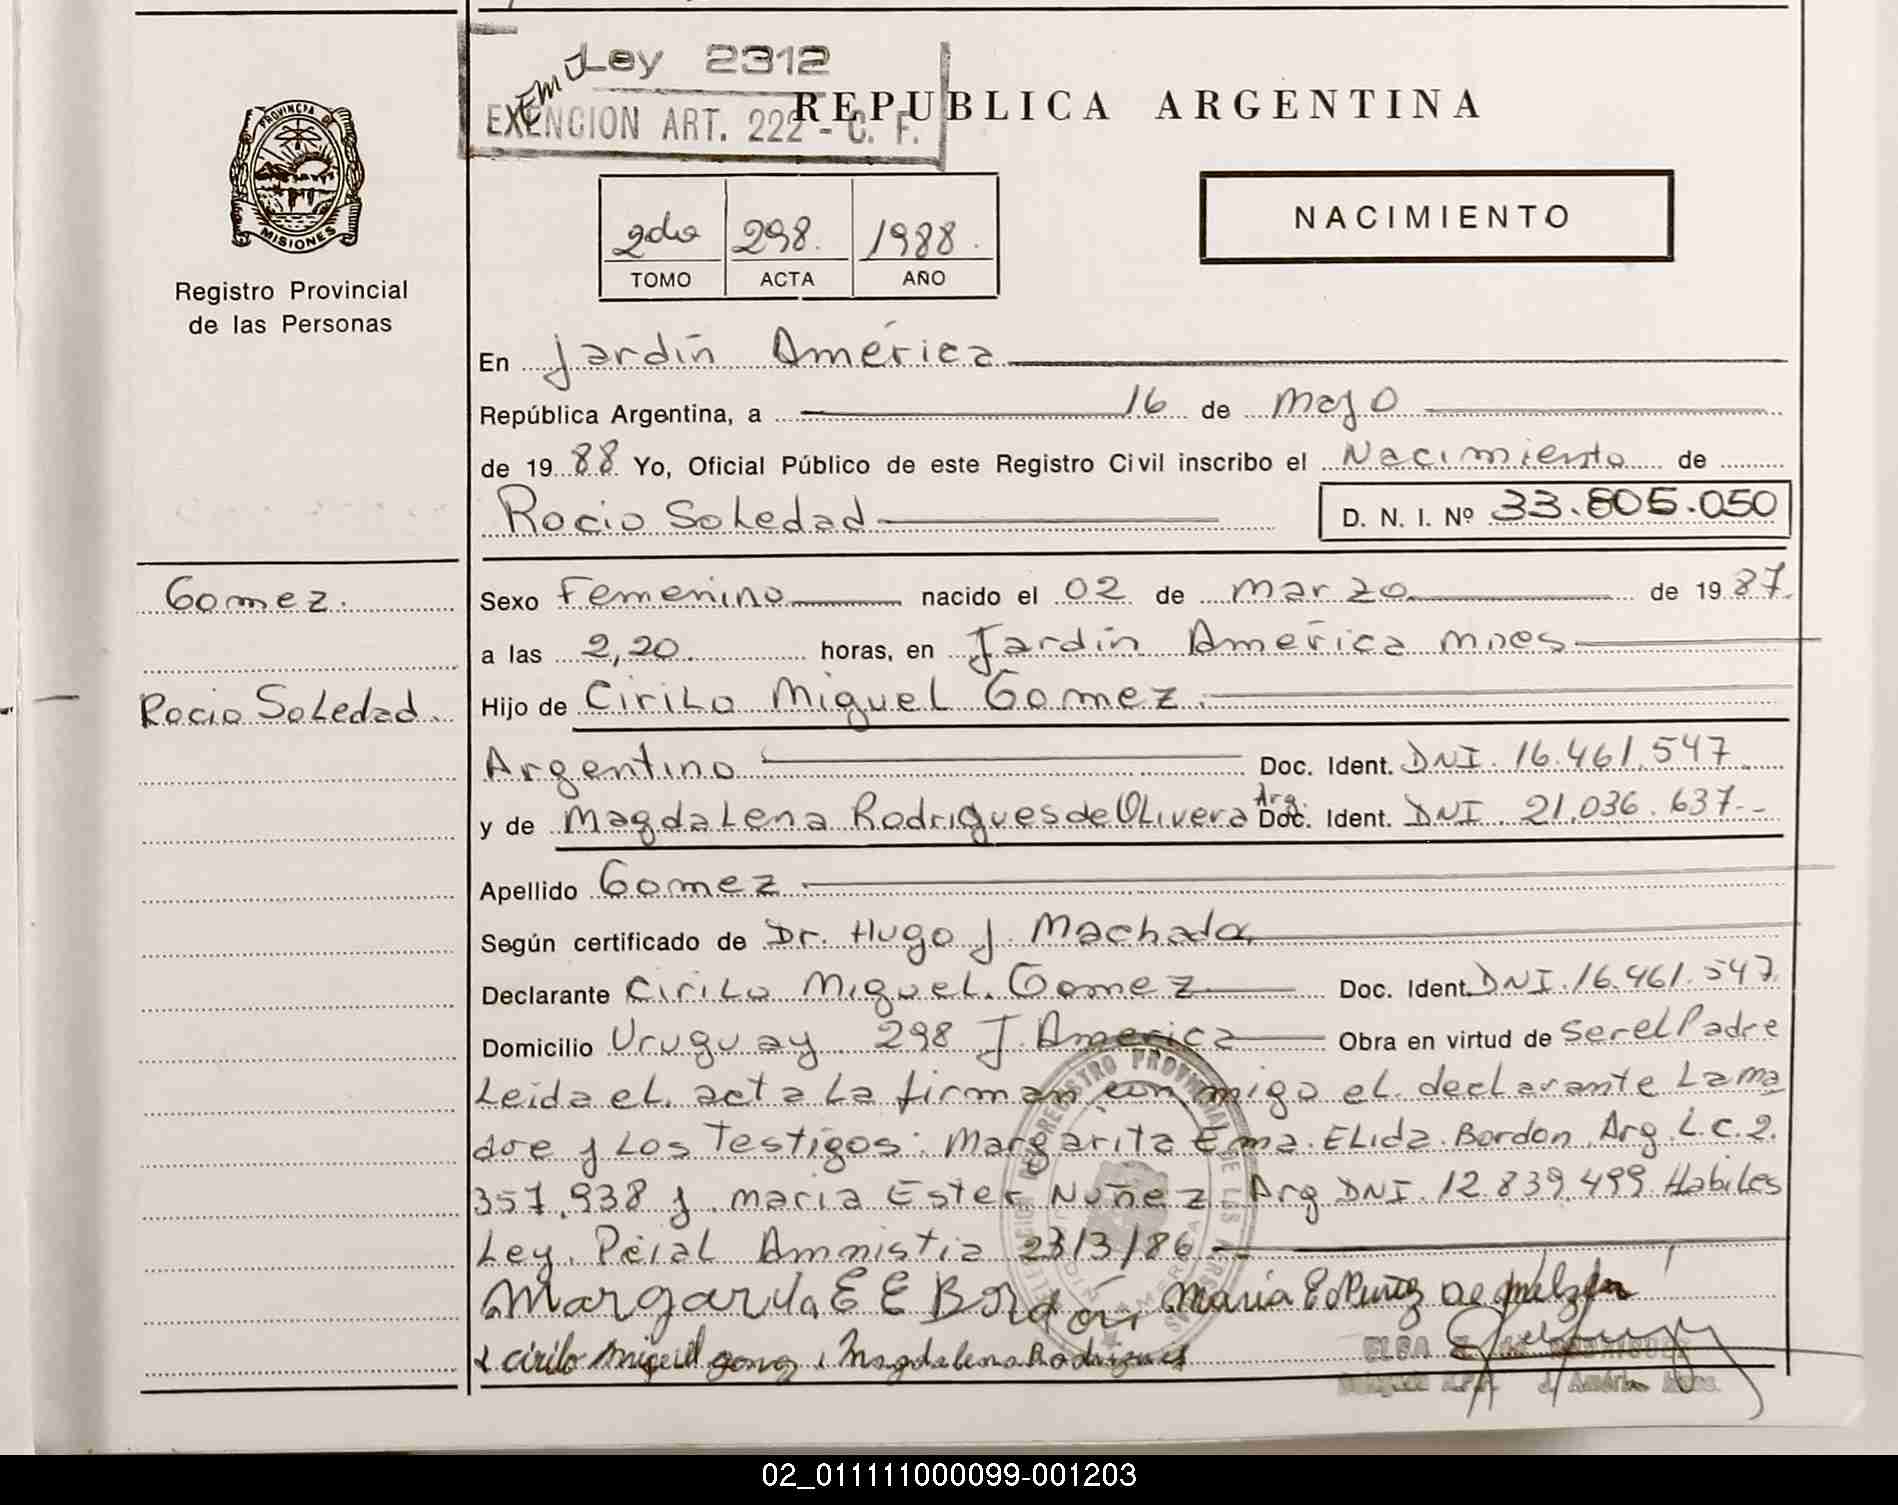 Ley 2312
EXENCION ART. 222 - C. F.
REPUBLICA ARGENTINA
PROVINCIA DE
MISIONES
Registro Provincial
de las Personas
2do 298. 1988.
TOMO ACTA AÑO
NACIMIENTO
En Jardín América
República Argentina, a 16 de mayo
de 1988 Yo, Oficial Público de este Registro Civil inscribo el Nacimiento de
Rocio Soledad D. N. I. Nº 33.605.050
Gomez.
Sexo Femenino nacido el 02 de marzo de 1987.
a las 2,20 horas, en Jardín América mnes
Rocio Soledad.
Hijo de Cirilo Miguel Gomez.
Argentino Doc. Ident. DNI. 16.461.547
Arg.
y de Magdalena Rodrigues de Olivera Doc. Ident. DNI. 21.036.637--
Apellido Gomez
Según certificado de Dr. Hugo J. Machado
Declarante Cirilo Miguel Gomez Doc. Ident. DNI.16.461.547
Domicilio Uruguay 298 J. America Obra en virtud de Ser el Padre
Leida el acta la firman conmigo el declarante La ma
dre y Los Testigos: Margarita Ema Elida Bordon Arg. L.C. 2.
357.938 y maria Ester Nuñez Arg DNI. 12.839.499 Habiles
Ley. Amnistia 23/3/86
Margarita E E Bordón, Maria E
Cirilo Miguel Magdalena Rodrigues
02_011111000099-001203